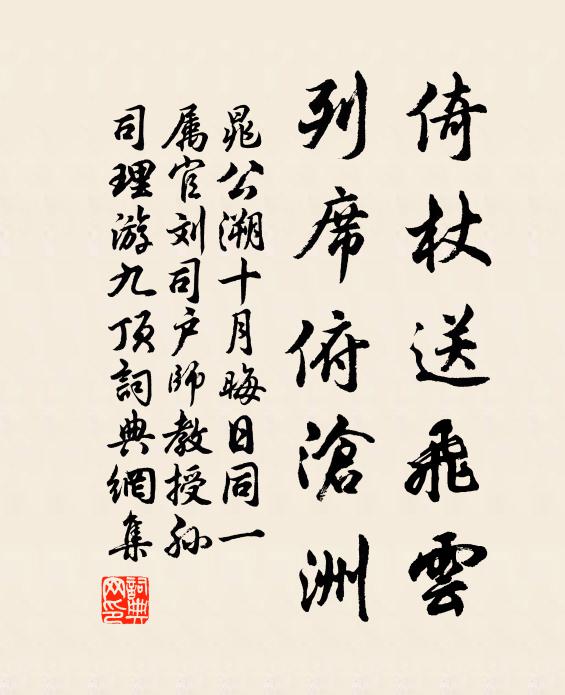 倚杖送飛雲
列席俯滄洲
晁公溯十月晦日同一
属官刘司户師教授孙
司理游九顶詞典網集
詞典網印